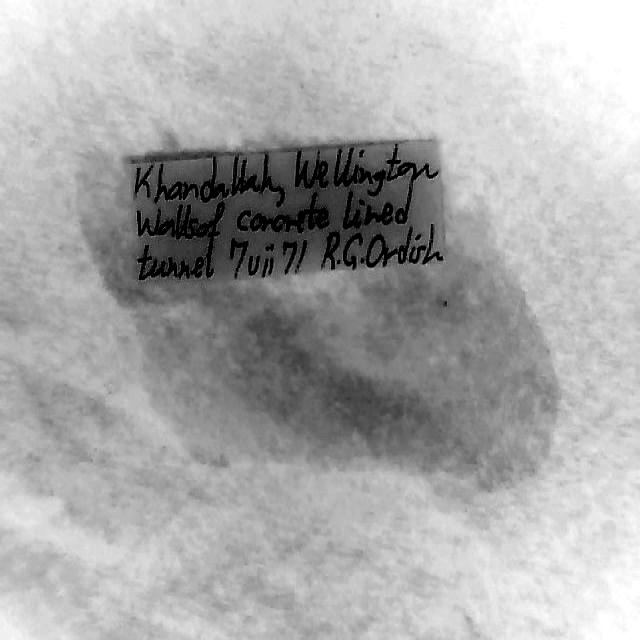 Khandallah, Wellington
Walls of concrete lined
tunnel 7 vii 71 R.G. Ordish